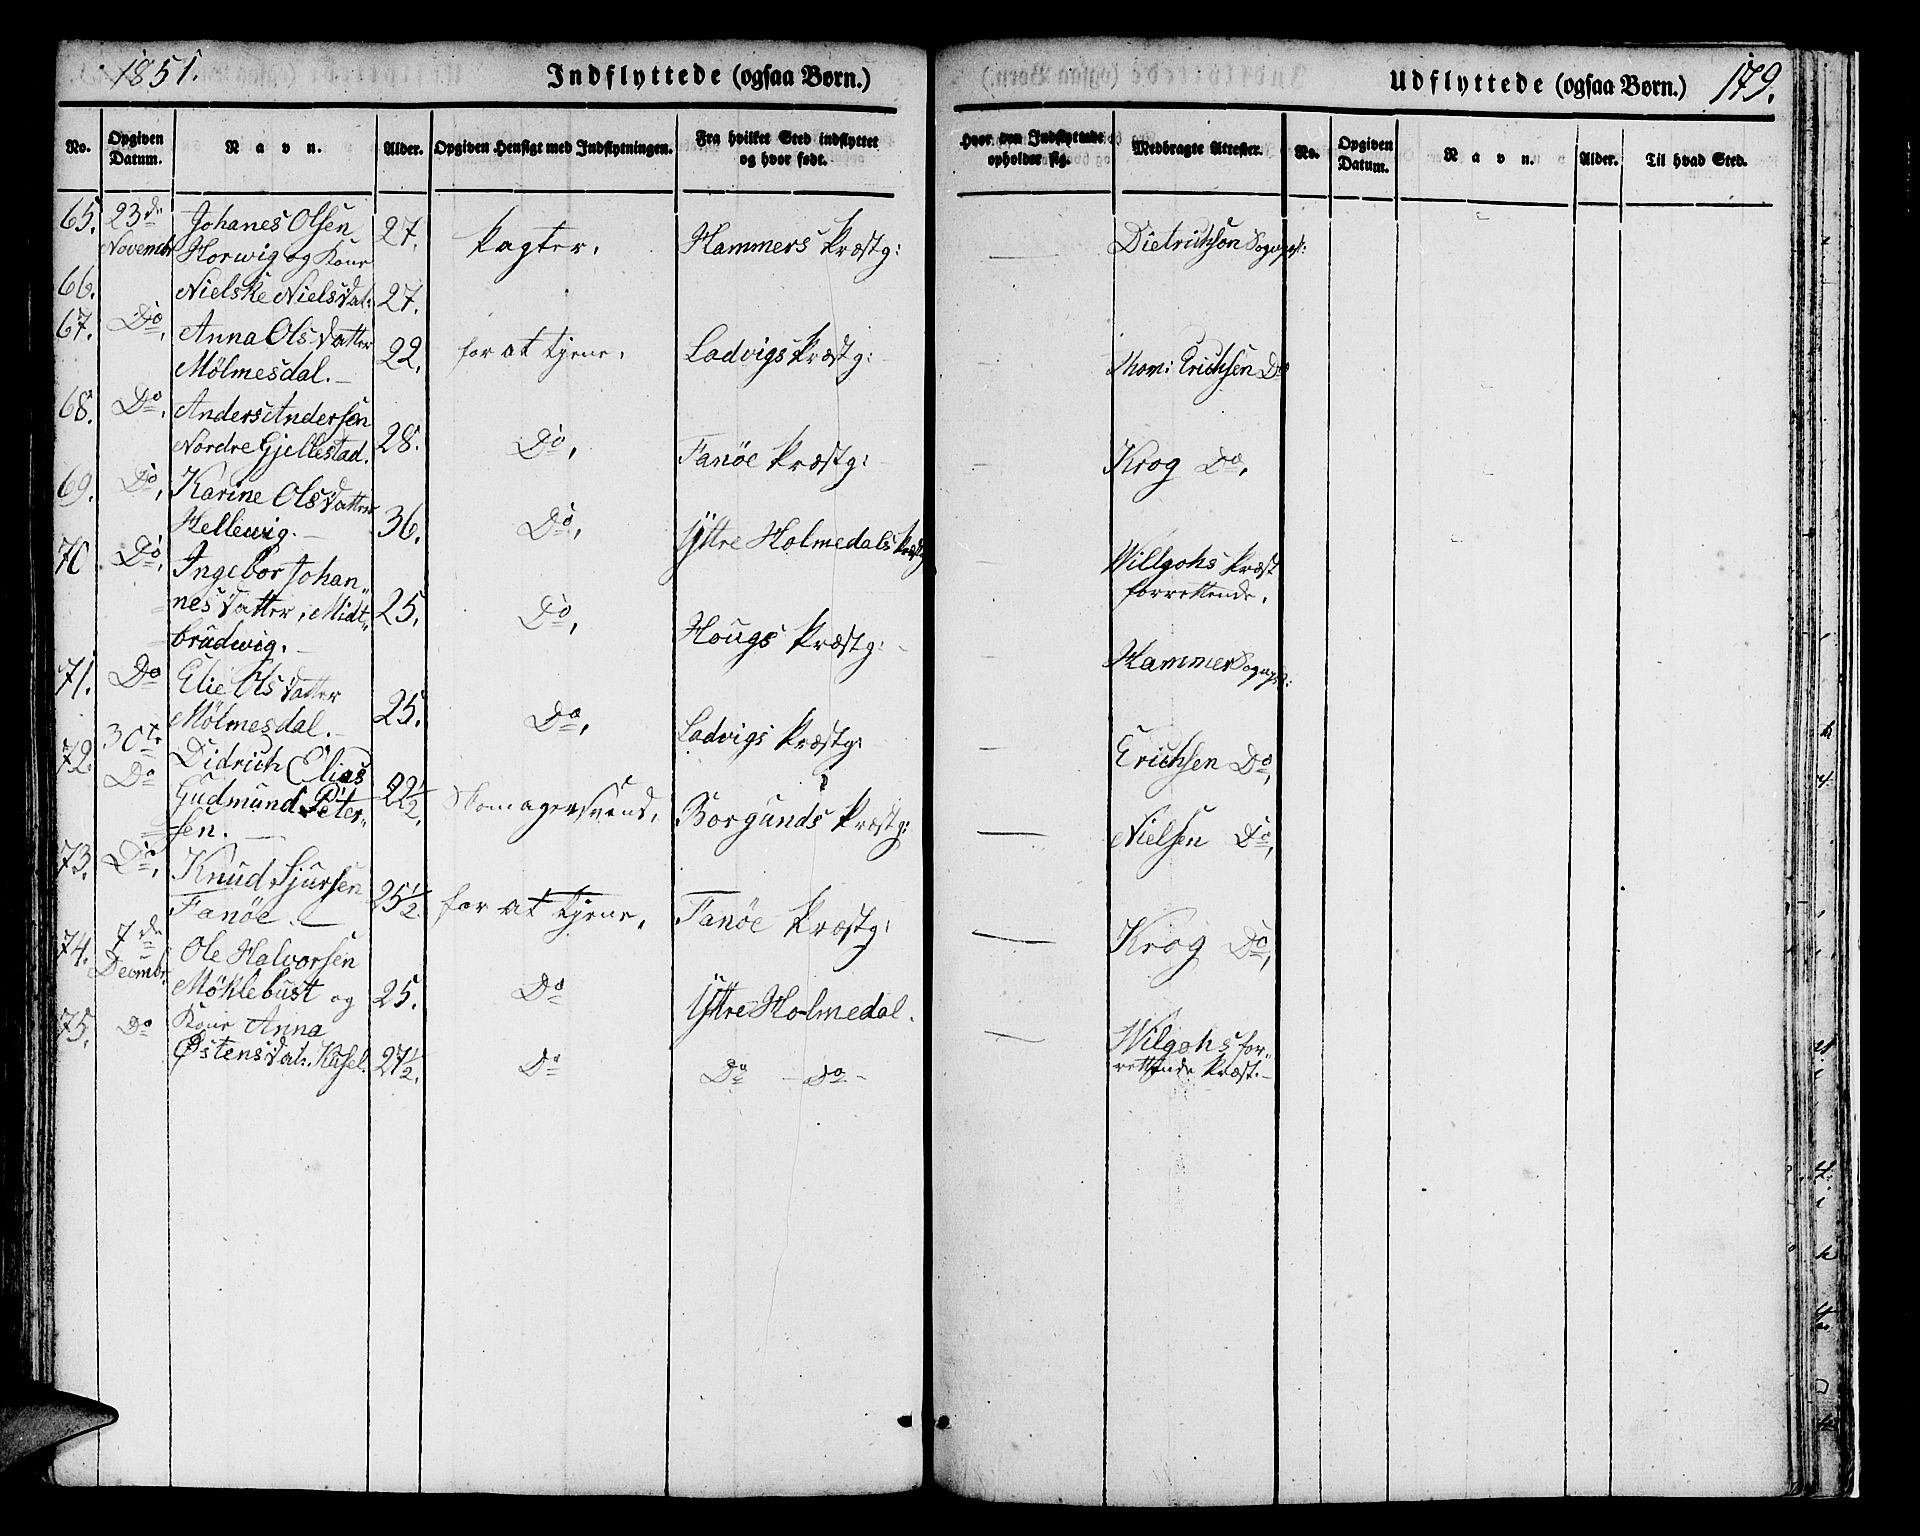 1851.
Indflyttede (ogsaa Børn.)
Udflyttede (ogsaa Børn.) 179.
No. Opgiven Datum. Navn. Alder. Opgiven Hensigt med Indflytningen. Fra hvilket Sted indflyttet og hvor født. Hvor den Indflyttede opholder sig. Medbragte Attester. No. Opgiven Datum. Navn. Alder. Til hvad Sted.
65. 23de Johanes Olsen 27.
Novembr Horwig og Kone Pagter. Hammers Præstg: Dietrichson Sognepr:
66. Nielske Nielsdat: 27.
67. Do. Anna Olsdatter
Mølmesdal. 22. for at tjene. Ladvigs Præstg: Thom: Erichsen Do
68. Do. Anders Andersen
Nordre Gjellestad. 28. Do. Fanöe Præstg: Krog Do.
69. Do. Karine Olsdatter
Hellewig. 36. Do. Yttre Holmedals Præstg Willgohs Præst
forrettende.
70 Do. Ingebor Johan-
nesdatter, Midt- 25. Do. Hougs Præstg: Hammer Sognepr:
brudwig.
71. Do Elie Olsdatter
Mølmesdal. 25. Do. Ladvigs Præstg: Erichsen Do.
72. 30te Didrich Elias
Do Gudmund Peter- 22½. Skomagersvend. Borgunds Præstg: Nielsen Do.
sen.
73. Do. Knud Sjursen
Fanöe. 25½. for at tjene. Fanöe Præstg: Krog Do.
74. 7de Ole Halvorsen
Decmbr. Möklebust og 25. Do Yttre Holmedal. Wilgohs for-
rettende Præst.
75. Do Kone Anna
Østensdat. 27½. Do Do Do